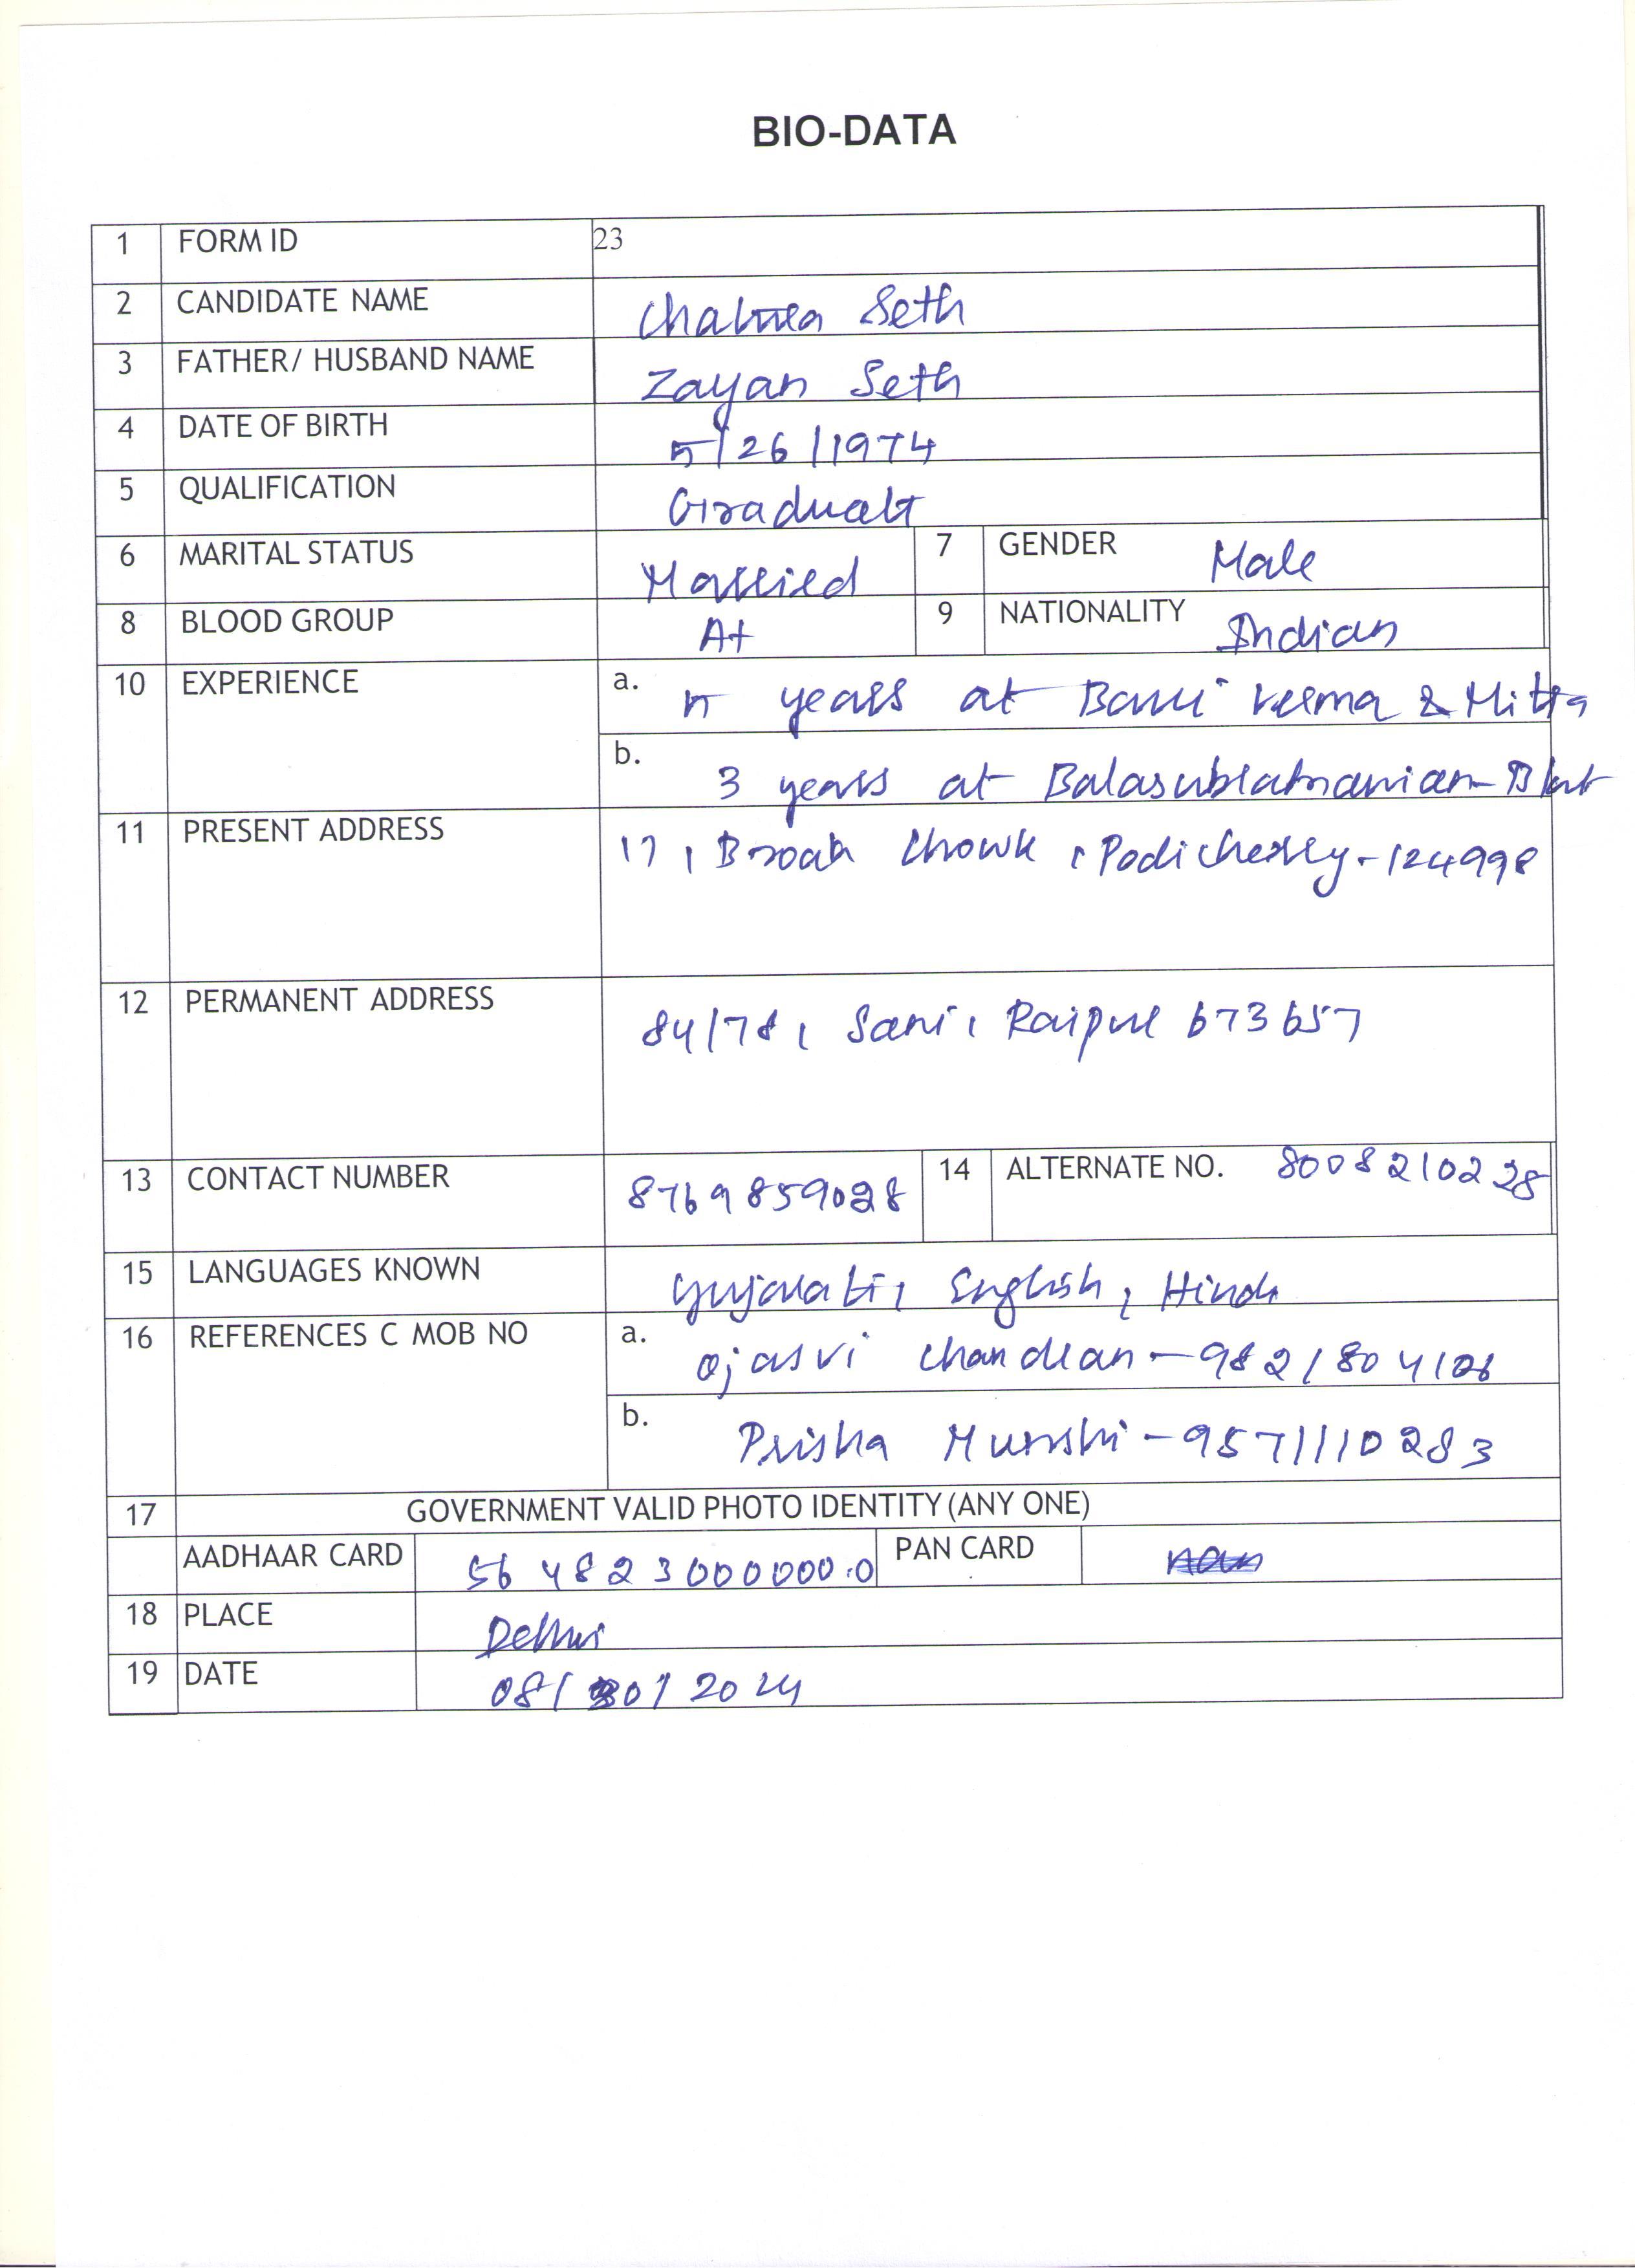 BIO-DATA
1 FORM ID 23
2 CANDIDATE NAME Seth
3 FATHER/ HUSBAND NAME Zayan Seth
4 DATE OF BIRTH 5/26/1974
5 QUALIFICATION Graduate
6 MARITAL STATUS Married 7 GENDER Male
8 BLOOD GROUP A+ 9 NATIONALITY Indian
10 EXPERIENCE a. 5 years at & Mitta
b. 3 years at Balasubramaniam-
11 PRESENT ADDRESS 17, Chowk, Podicherry-124998
12 PERMANENT ADDRESS 84/78, Sani, Raipur 673657
13 CONTACT NUMBER 8769859028 14 ALTERNATE NO. 8008210228
15 LANGUAGES KNOWN Gujarati, English, Hindi
16 REFERENCES C MOB NO a. Ojasvi Chandran-
b. Prisha Munshi-9571110283
17 GOVERNMENT VALID PHOTO IDENTITY (ANY ONE)
AADHAAR CARD 564823000000.0 PAN CARD
18 PLACE Delhi
19 DATE 08/30/2024